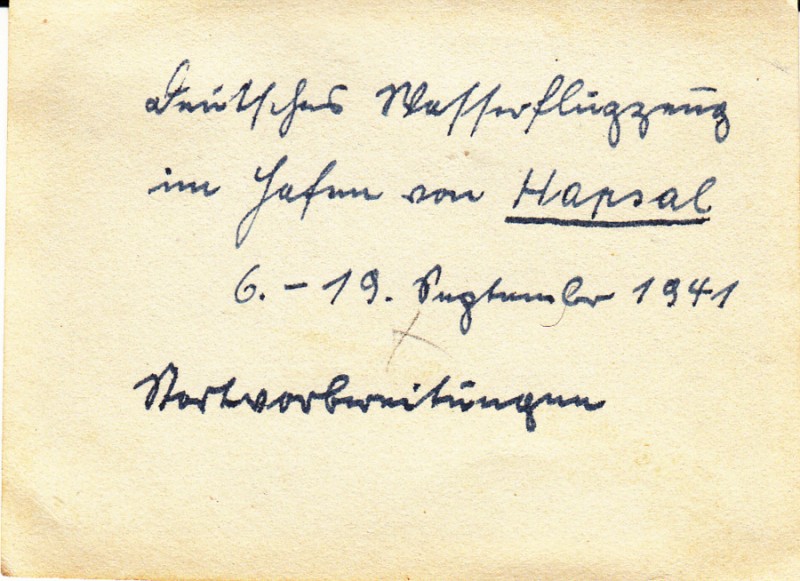 Deutsches Wasserflugzeug
im Hafen von Hapsal
6. - 19. September 1941
Startvorbereitungen